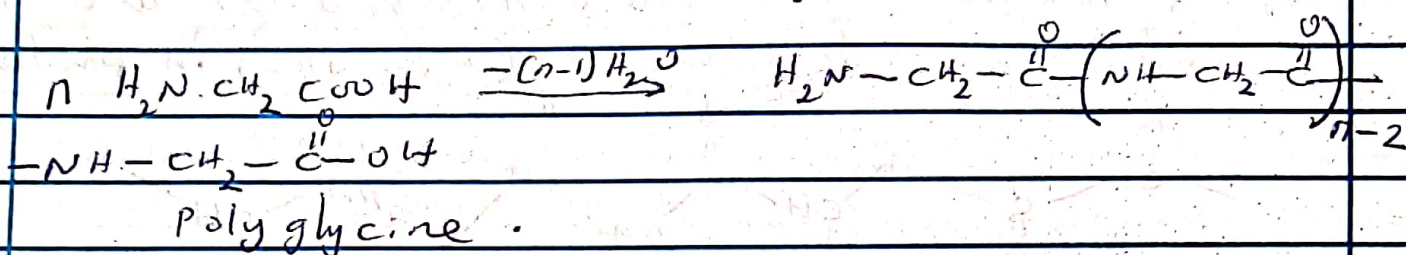 n H₂N.CH₂ COOH —(n-1)H₂O→ H₂N—CH₂—C(=O)—(NH—CH₂—C(=O))ₙ₋₂—
—NH—CH₂—C(=O)—OH
Polyglycine.